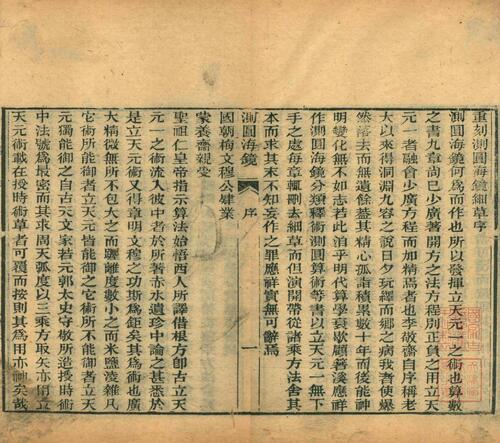 重刻測圓海鏡細草序
測圓海鏡何爲而作也所以發揮立天元一之術也算數
之書九章尚巳少廣著開方之法方程別正負之用立天
元一者融會少廣方程而加精焉者也李敬齋自序稱老
大以來得洞淵九容之說日夕玩繹而鄉之病我者使爆
然落去而無遺餘蓋其精心孤詣積累數十年而後能神
明變化無不如志若此洎乎明代算學衰歇顧箬溪應祥
作測圓海鏡分類釋術測圓算術等書以立天元一無下
手之處每章輒刪去細草而但演開帶從諸乘方法舍其
本而求其末不知妄作之罪應祥實無可辭焉
測圓海鏡 序 一
國朝梅文穆公肄業
蒙養齋親受
聖祖仁皇帝指示算法始悟西人所譯借根方卽古立天
元一之術流入彼中者於所著赤水遺珍中論之甚悉於
是立天元術又得章明文穆之功斯爲鉅矣其爲術也廣
大精微無所不包大之而躔離度數小之而米鹽淩雜凡
它術所能御者立天元皆能御之它術所不能御者立天
元獨能御之自古天文家若元郭太史守敬所造授時術
中法號爲最密而其求周天弧度以三乘方取矢亦用立
天元術載在授時術草者可覆而按則其爲用亦神矣哉